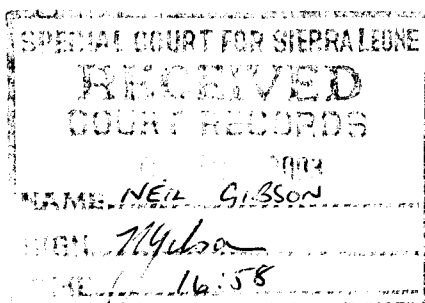 SPECIAL COURT FOR SIERRA LEONE
RECEIVED
COURT RECORDS
NAME NEIL GIBSON
SIGN NGibson
TIME 16:58